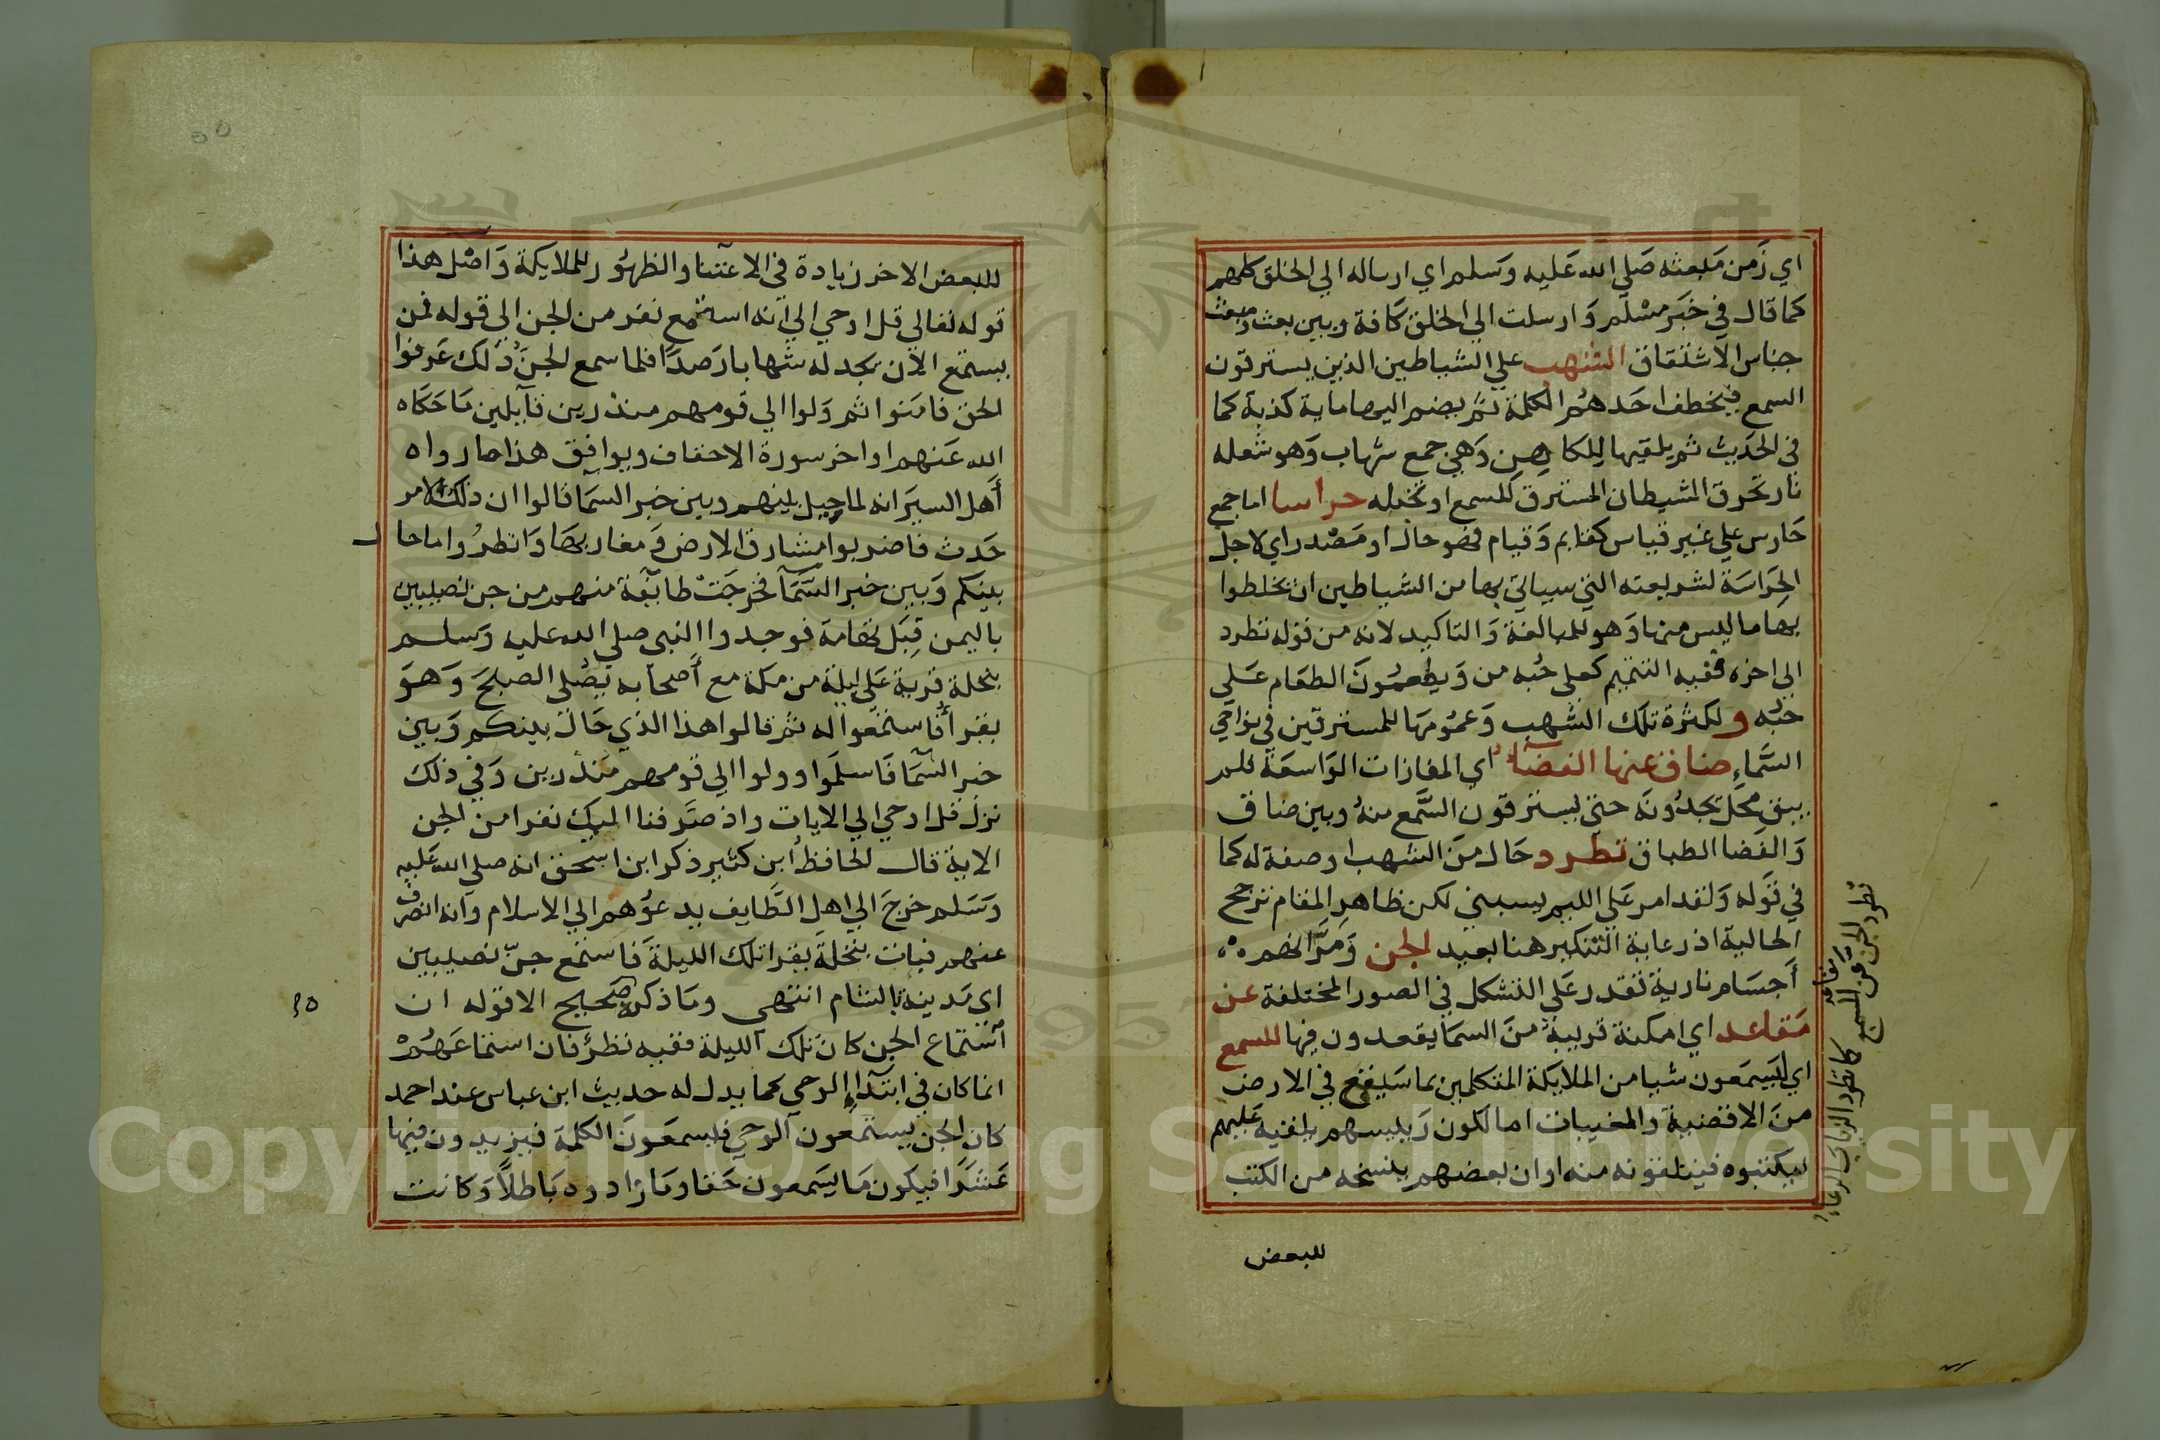 اي زمن مبعثه صلي الله عليه وسلم اي ارساله الي الخلق كلهم
كما قال في خبر مسلم وارسلت الي الخلق كافة وبين بعث ومبعث
جناس الاشتقاق الشهب علي الشياطين الذين يسترقون
السمع فيخطف احدهم الكلمة ثم يضم اليها ماية كذبة كما
في الحديث ثم يلقيها للكاهن وهي جمع شهاب وهو شعلة
نار تحرق الشيطان المسترق للسمع او تخبله حراسا اما جمع
حارس علي غير قياس كقايم وقيام فهو حال او مصدر اي لاجل
الحراسة لشريعته التي سياتي بها من الشياطين ان تخلطوا
بها ما ليس منها وهو للمبالغة والتاكيد لانه من قوله تطرد
الي اخره ففيه التتميم كعلي حبه من ويطعمون الطعام علي
حبه ولكثرة تلك الشهب وعمومها للمسترقين في نواحي
السماء ضاق عنها الفضآء اي المفازات الواسعة فلم
يبق محل يجدونه حتي يسترقون السمع منه وبين ضاق
والفضا الطباق تطرد حال من الشهب او صفة له كما
في قوله ولقد امر علي اللييم يسبني لكن ظاهر المقام ترجح
الحالية اذ رعاية التنكير هنا بعيد الجن ومر انهم
اجسام نارية تقدر علي التشكل في الصور المختلفة عن
مقاعد اي امكنة قريبة من السما يقعدون فيها للسمع
اي ليسمعون شيا من الملايكة المتكلمين بما سيقع في الارض
من الاقضية والمغيبات اما لكون رييسهم يلقيه عليهم
ليكتبوه فيتلقونه منه او ان بعضهم ينسخه من الكتب
للبعض
تطرد الجن عن مقاعد للسمع كما تطرد الذياب الرعاء
للبعض الاخر زيادة في الاعتنا والظهور للملايكة واصل هذا
قوله تعالي قل اوحي الي انه استمع نفر من الجن الي قوله فمن
يستمع الآن يجد له شهابا رصدا فلما سمع الجن ذلك عرفوا
الحق فامنوا ثم ولوا الي قومهم منذرين قآيلين ما حكاه
الله عنهم اواخر سورة الاحقاف ويوافق هذا ما رواه
أهل السير انه لما حيل بينهم وبين خبر السما قالوا ان ذلك لامر
حدث فاضربوا مشارق الارض ومغاربها وانظروا ما حال
بينكم وبين خبر السمآ فخرجت طآيفة منهم من جن نصيبين
باليمن قبل تهامة فوجدوا النبي صلي الله عليه وسلم
بنخلة قرية علي ليلة من مكة مع أصحابه يصلي الصبح وهو
يقرأ فاستمعوا له ثم قالوا هذا الذي حال بينكم وبين
خبر السما فاسلموا وولوا الي قومهم منذرين وفي ذلك
نزل قل اوحي الي الايات واذ صرفنا اليك نفرا من الجن
الاية قال الحافظ ابن كثير ذكر ابن اسحق انه صلي الله عليه
وسلم خرج الي اهل الطايف يدعوهم الي الاسلام وانه انصرف
عنهم فبات بنخلة يقرا تلك الليلة فاستمع جن نصيبين
اي مدينة بالشام انتهي وما ذكره صحيح الا قوله ان
استماع الجن كان تلك الليلة ففيه نظر فان استماعهم
انما كان في ابتدآ الوحي كما يدل له حديث ابن عباس عند احمد
كان الجن يستمعون الوحي فيسمعون الكلمة فيزيدون فيها
عشرا فيكون ما يسمعون حقا وما زادوه باطلا وكانت
Copyright © King Saud University
1957